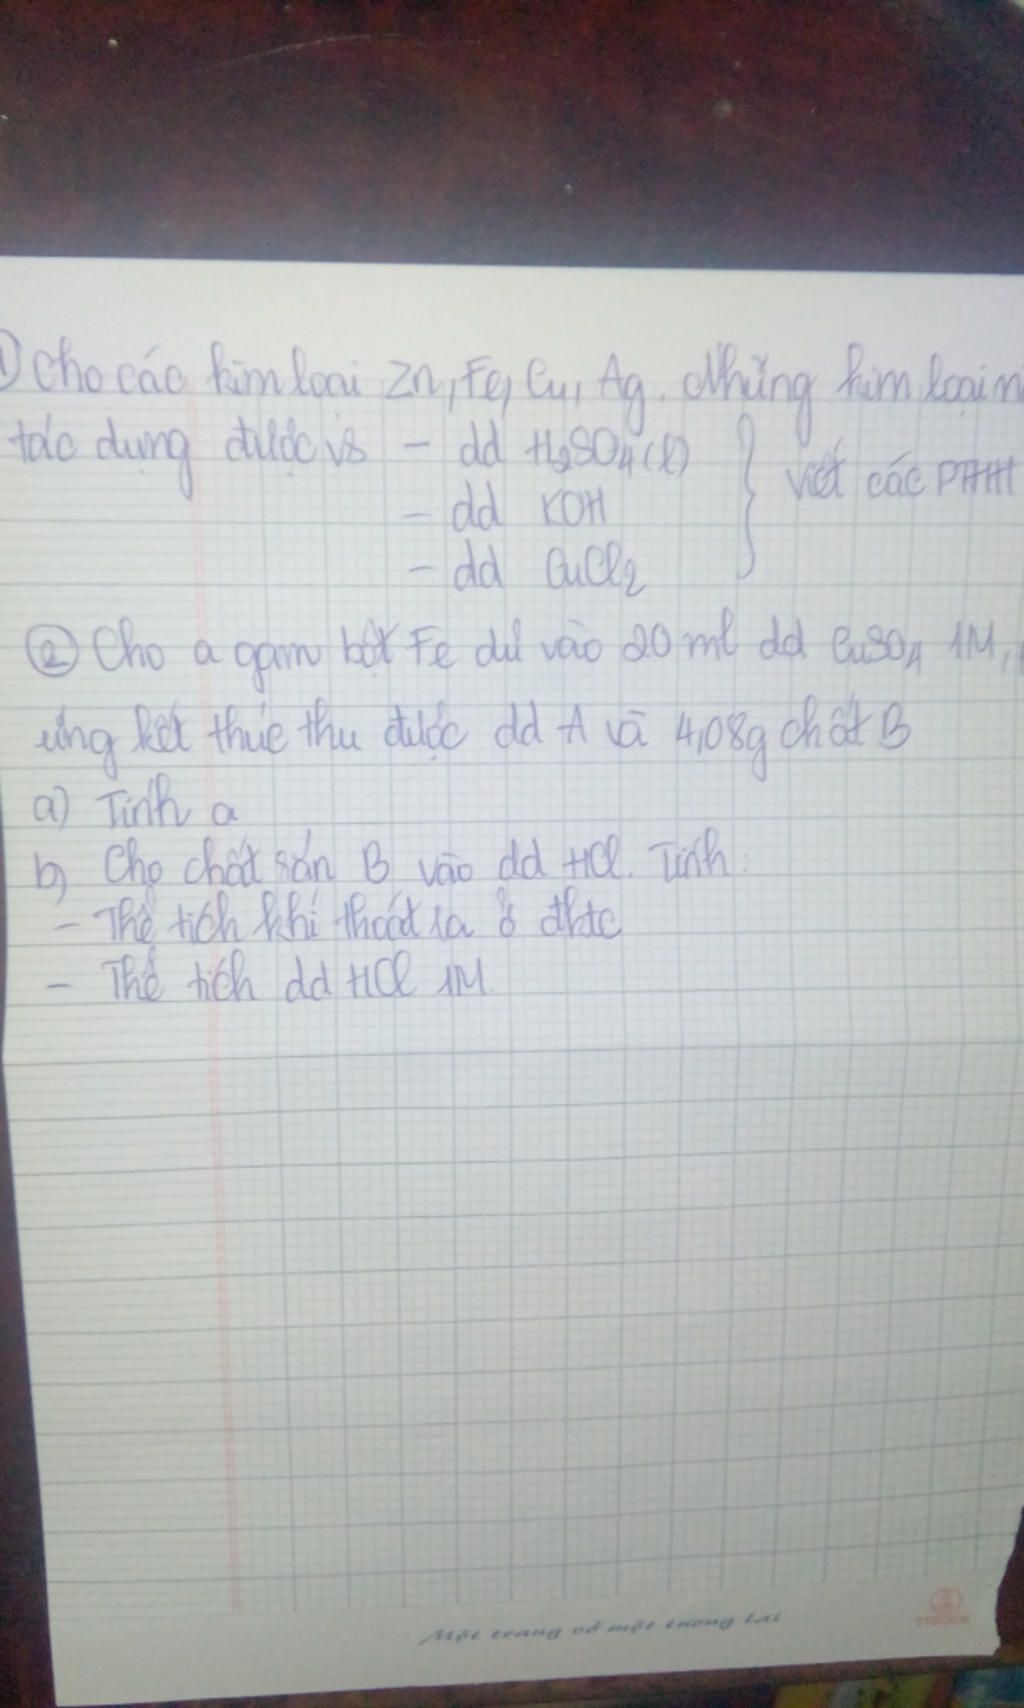 1) Cho các kim loại Zn, Fe, Cu, Ag. Những kim loại n
tác dụng được vs - dd H₂SO₄(l) } viết các PTHH
- dd KOH
- dd CuCl₂
② Cho a gam bột Fe dư vào 20 ml dd CuSO₄ 1M,
ứng kết thúc thu được dd A và 4,08g chất B
a) Tính a
b) Cho chất rắn B vào dd HCl. Tính:
- Thể tích khí thoát ra ở đktc
- Thể tích dd HCl 1M.
Một trang vở một tương lai